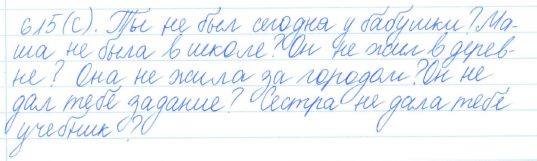 615(С). Ты не был сегодня у бабушки? Ма-
ша не была в школе? Он не жил в дерев-
не? Она не жила за городом? Он не
дал тебе задание? Сестра не дала тебе
учебник?